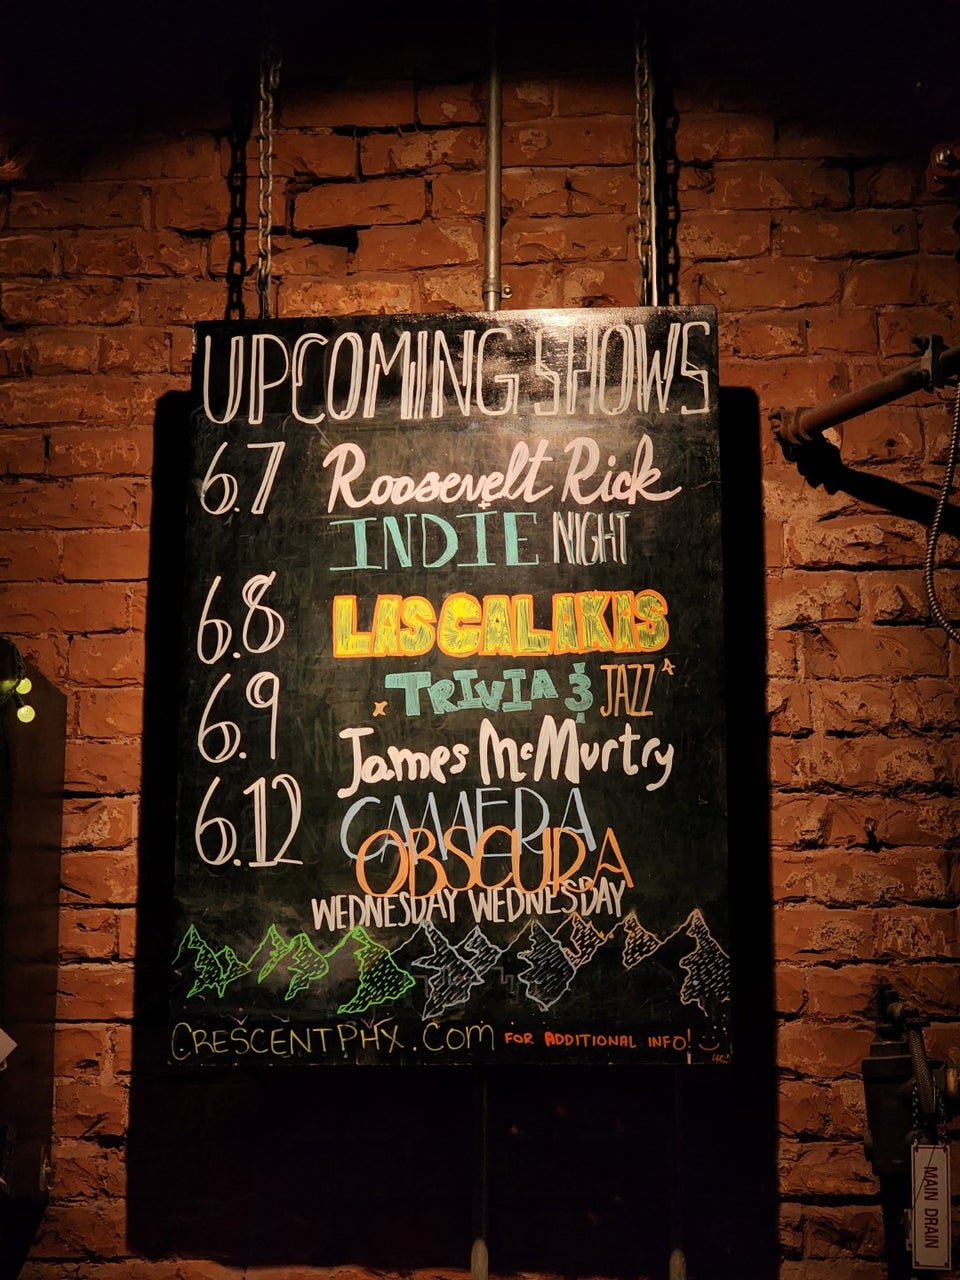 UPCOMING SHOWS
6.7 Roosevelt Rick
INDIE NIGHT
6.8 LAS CALAKAS
TRIVIA & JAZZ
6.9 James McMurtry
6.12 CAMERA
OBSCURA
WEDNESDAY WEDNESDAY
CRESCENTPHX.COM FOR ADDITIONAL INFO!
MAIN DRAIN